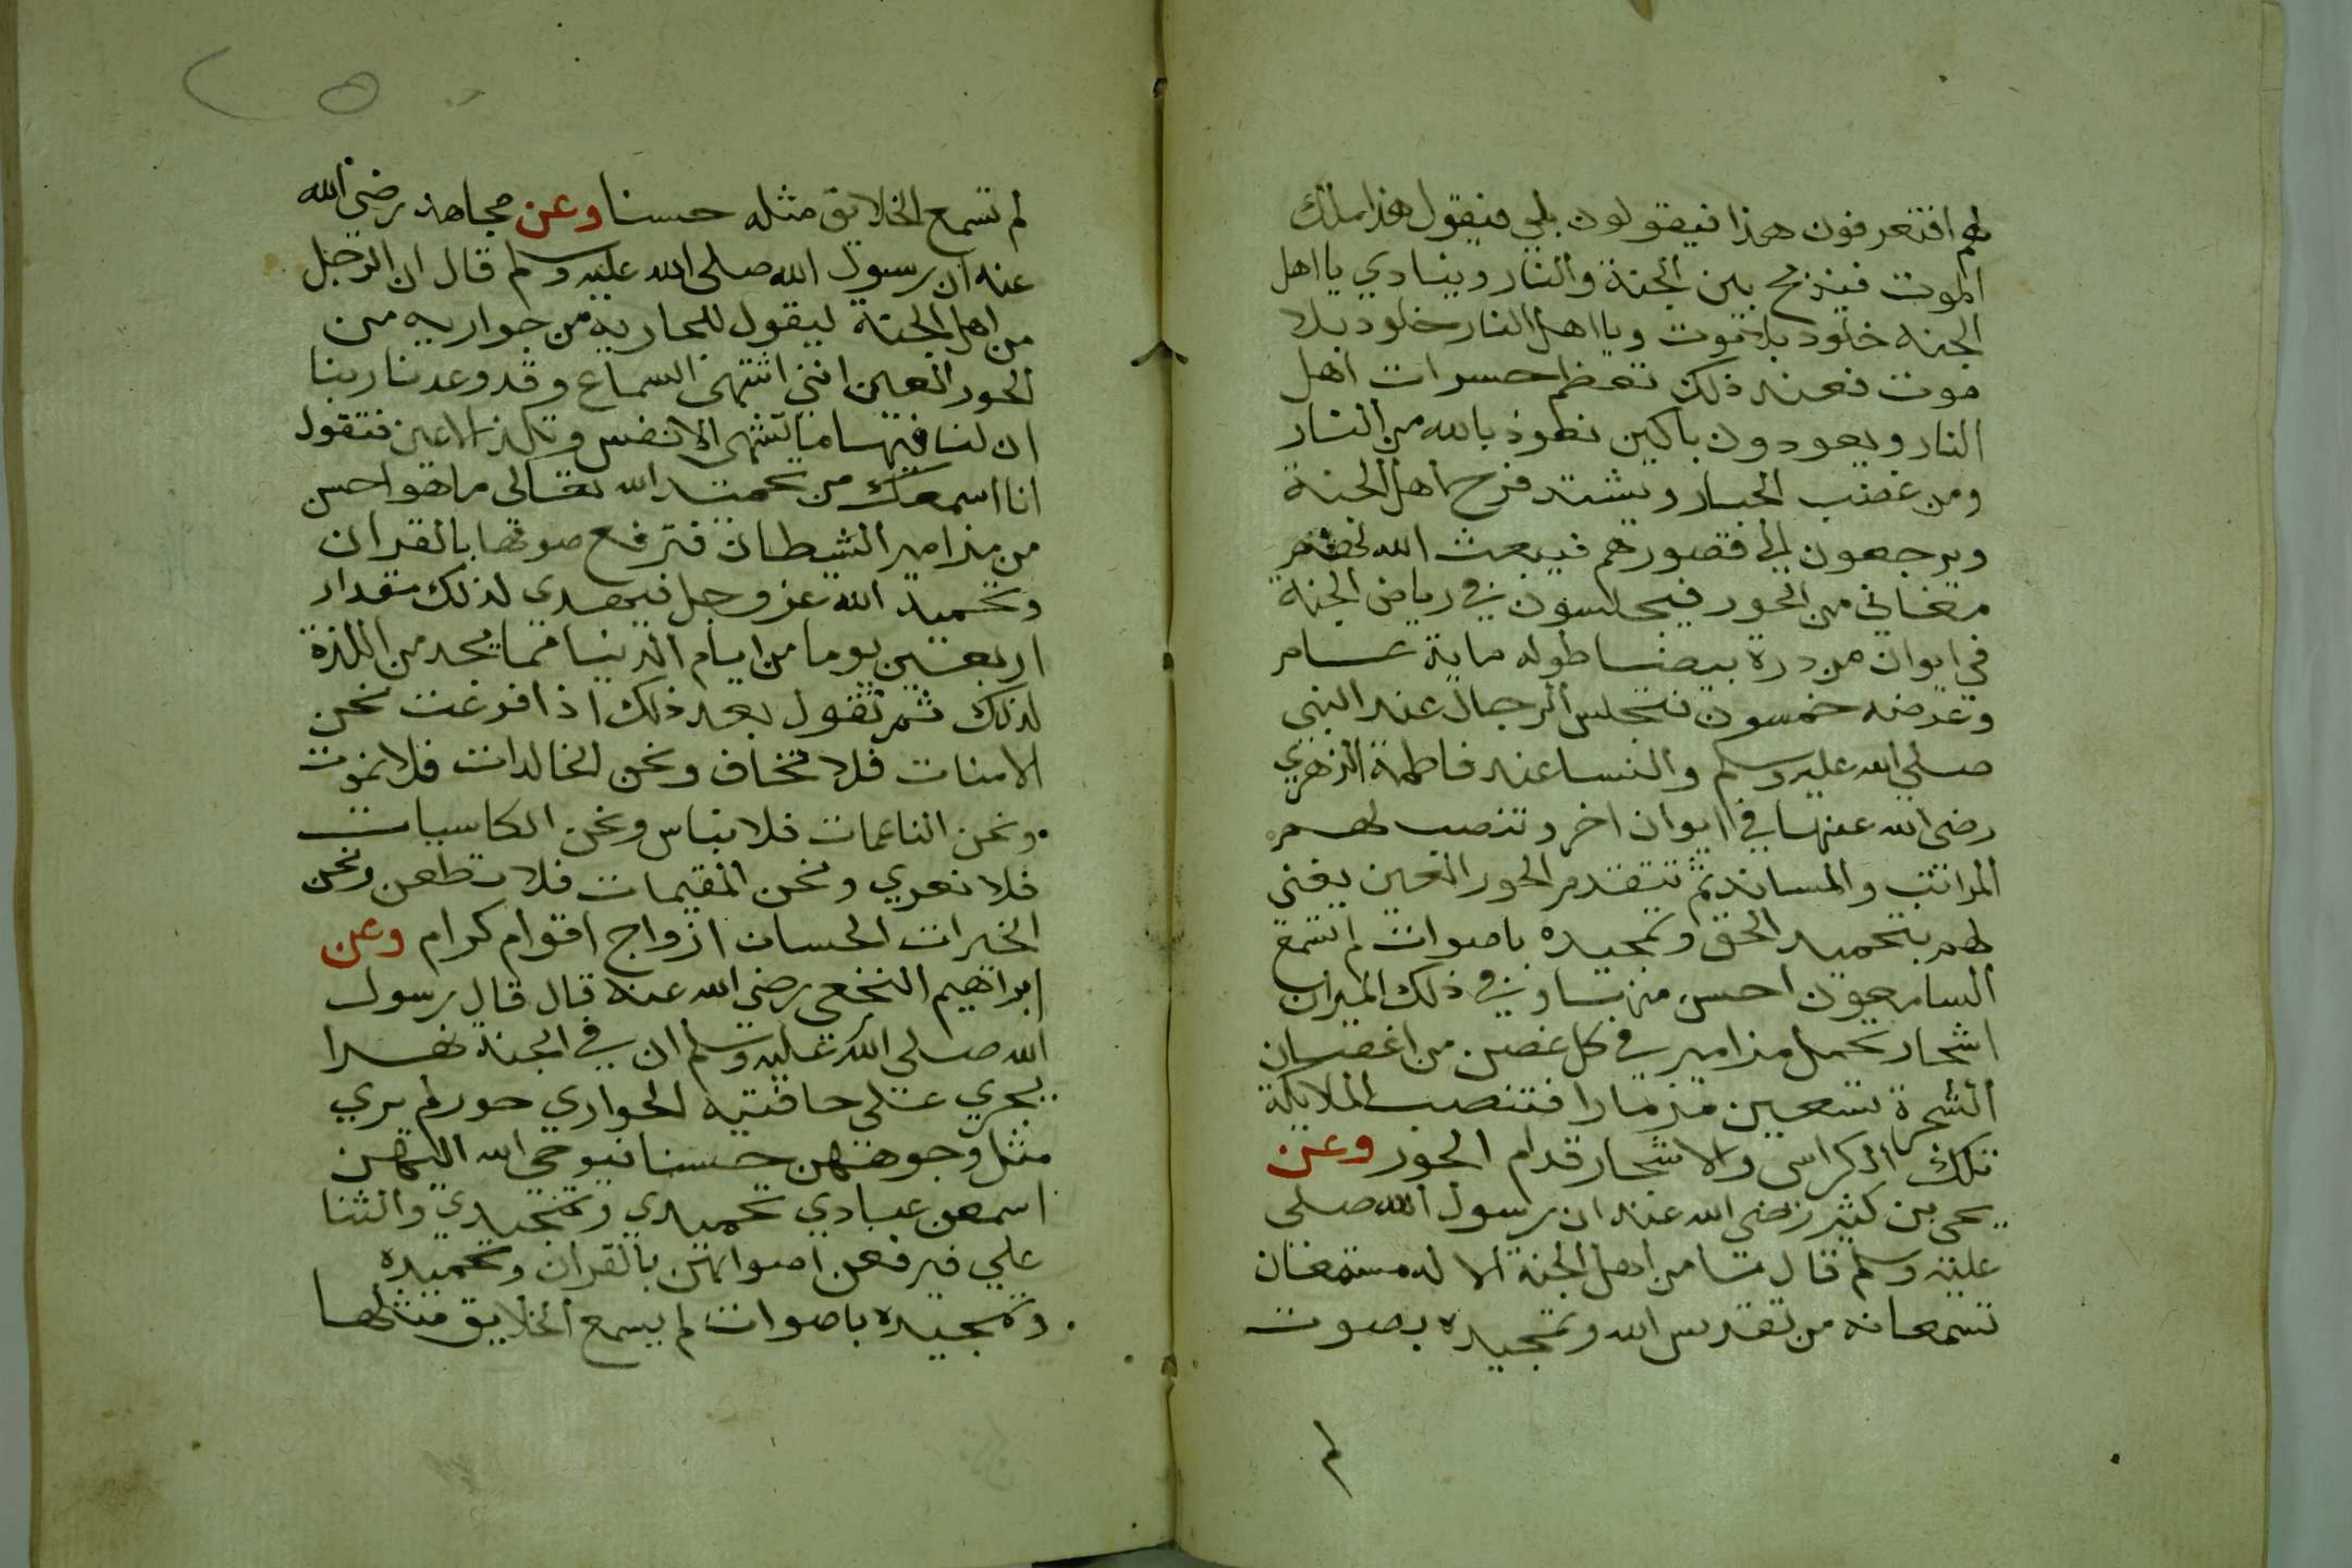 لهم افتعرفون هذا فيقولون بلي فيقول هذا ملك
الموت فيذبح بين الجنة والنار وينادي يا اهل
الجنه خلود بلا موت ويا اهل النار خلود بلا
موت فعند ذلك تعظم حسرات اهل
النار ويعودون باكين نعوذ بالله من النار
ومن غضب الجبار ويشتد فرح اهل الجنة
ويرجعون الي قصورهم فيبعث الله لحضر
مغاني من الحور فيجلسون في رياض الجنة
في ايوان من درة بيضا طوله ماية عام
وعرضه خمسون فتجلس الرجال عند النبي
صلي الله عليه وسلم والنسا عند فاطمة الزهري
رضي الله عنها في ايوان اخر وتنصب لهم
المراتب والمساند ثم تتقدم الحور العين يغني
لهم بتحميد الحق وتمجيده باصوات لم تسمع
السامعون احسن منها وفي ذلك الميدان
اشجار تحمل مزامير في كل غصن من اغصان
الشجرة تسعين مزمارا فتنصب الملايكة
تلك الكراسي والاشجار قدام الحور وعن
يحي بن كثير رضي الله عنه ان رسول الله صلي
عليه وسلم قال ما من اهل الجنة الا له مستمعان
تسمعانه من تقديس الله وتمجيده بصوت
لم
لم تسمع الخلايق مثله حسنا وعن مجاهد رضي الله
عنه ان رسول الله صلى الله عليه وسلم قال ان الرجل
من اهل الجنة ليقول للجارية من جواريه من
الحور العين انني اشتهي السماع وقد وعدنا ربنا
ان لنا فيها ما تشتهي الانفس وتلذ الاعين فتقول
انا اسمعك من تحميد الله تعالى ما هو احسن
من مزامير الشيطان فترفع صوتها بالقران
وتحميد الله عز وجل فيهدي لذلك مقدار
اربعين يوما من ايام الدنيا مما يجد من اللذة
لذلك ثم تقول بعد ذلك اذا فرغت نحن
الامنات فلا نخاف ونحن الخالدات فلا نموت
ونحن الناعمات فلا نباس ونحن الكاسيات
فلا نعري ونحن المقيمات فلا نظعن ونحن
الخيرات الحسان ازواج اقوام كرام وعن
ابراهيم النخعي رضي الله عنه قال قال رسول
الله صلى الله عليه وسلم ان في الجنة نهرا
يجري على حافتيه الجواري حور لم يري
مثل وجوههن حسنا فيوحي الله اليهن
اسمعن عبادي تحميدي وتمجيدي والثنا
علي فيرفعن اصواتهن بالقران وتحميده
وتمجيده باصوات لم يسمع الخلايق مثلها